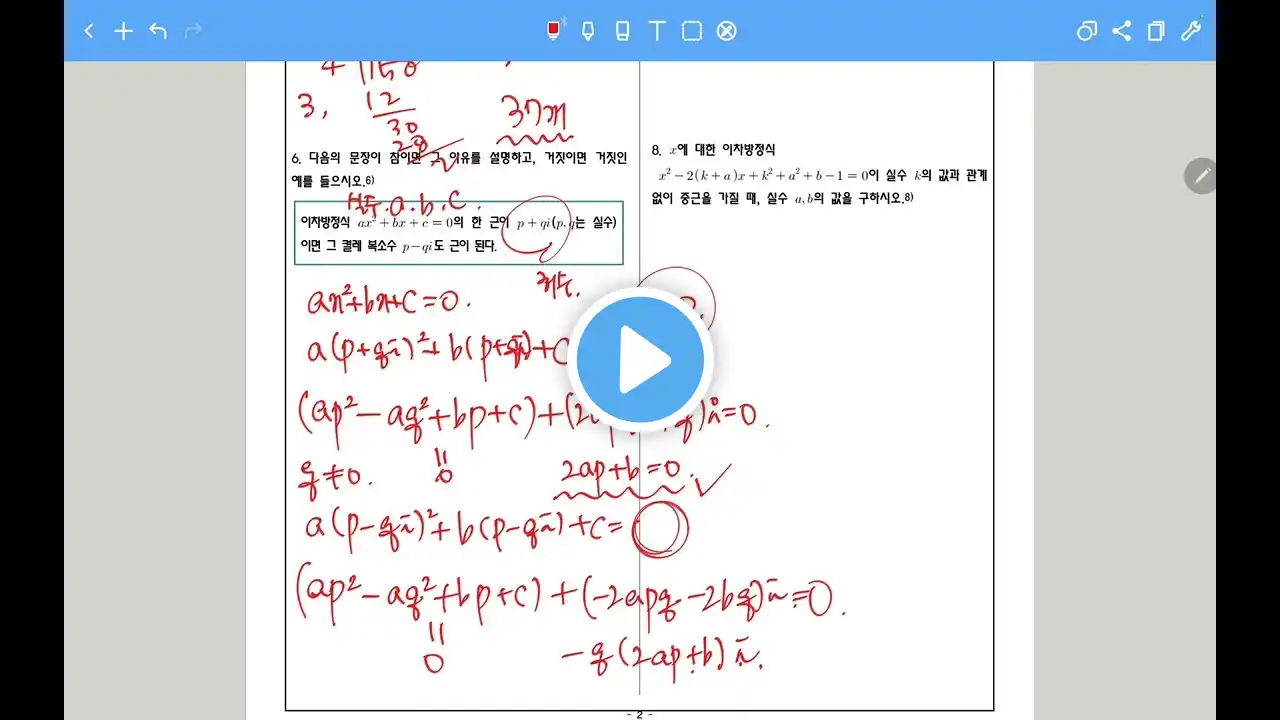 3, 12
30
28
37개
6. 다음의 문장이 참이면 그 이유를 설명하고, 거짓이면 거짓인
예를 들으시오.6)
실수. a. b. C.
이차방정식 ax²+bx+c=0의 한 근이 p+qi(p, q는 실수)
이면 그 켤레 복소수 p-qi도 근이 된다.
허수.
ax²+bx+c=0.
a(p+qi)²+b(p+qi)+C
(ap²-aq²+bp+c)+(2 )i=0.
q≠0. 0 2ap+b=0.
a(p-qi)²+b(p-qi)+c=
(ap²-aq²+bp+c)+(-2apq-2bq)i=0.
0 -q(2ap+b)i.
8. x에 대한 이차방정식
x²-2(k+a)x+k²+a²+b-1=0이 실수 k의 값과 관계
없이 중근을 가질 때, 실수 a,b의 값을 구하시오.8)
- 2 -